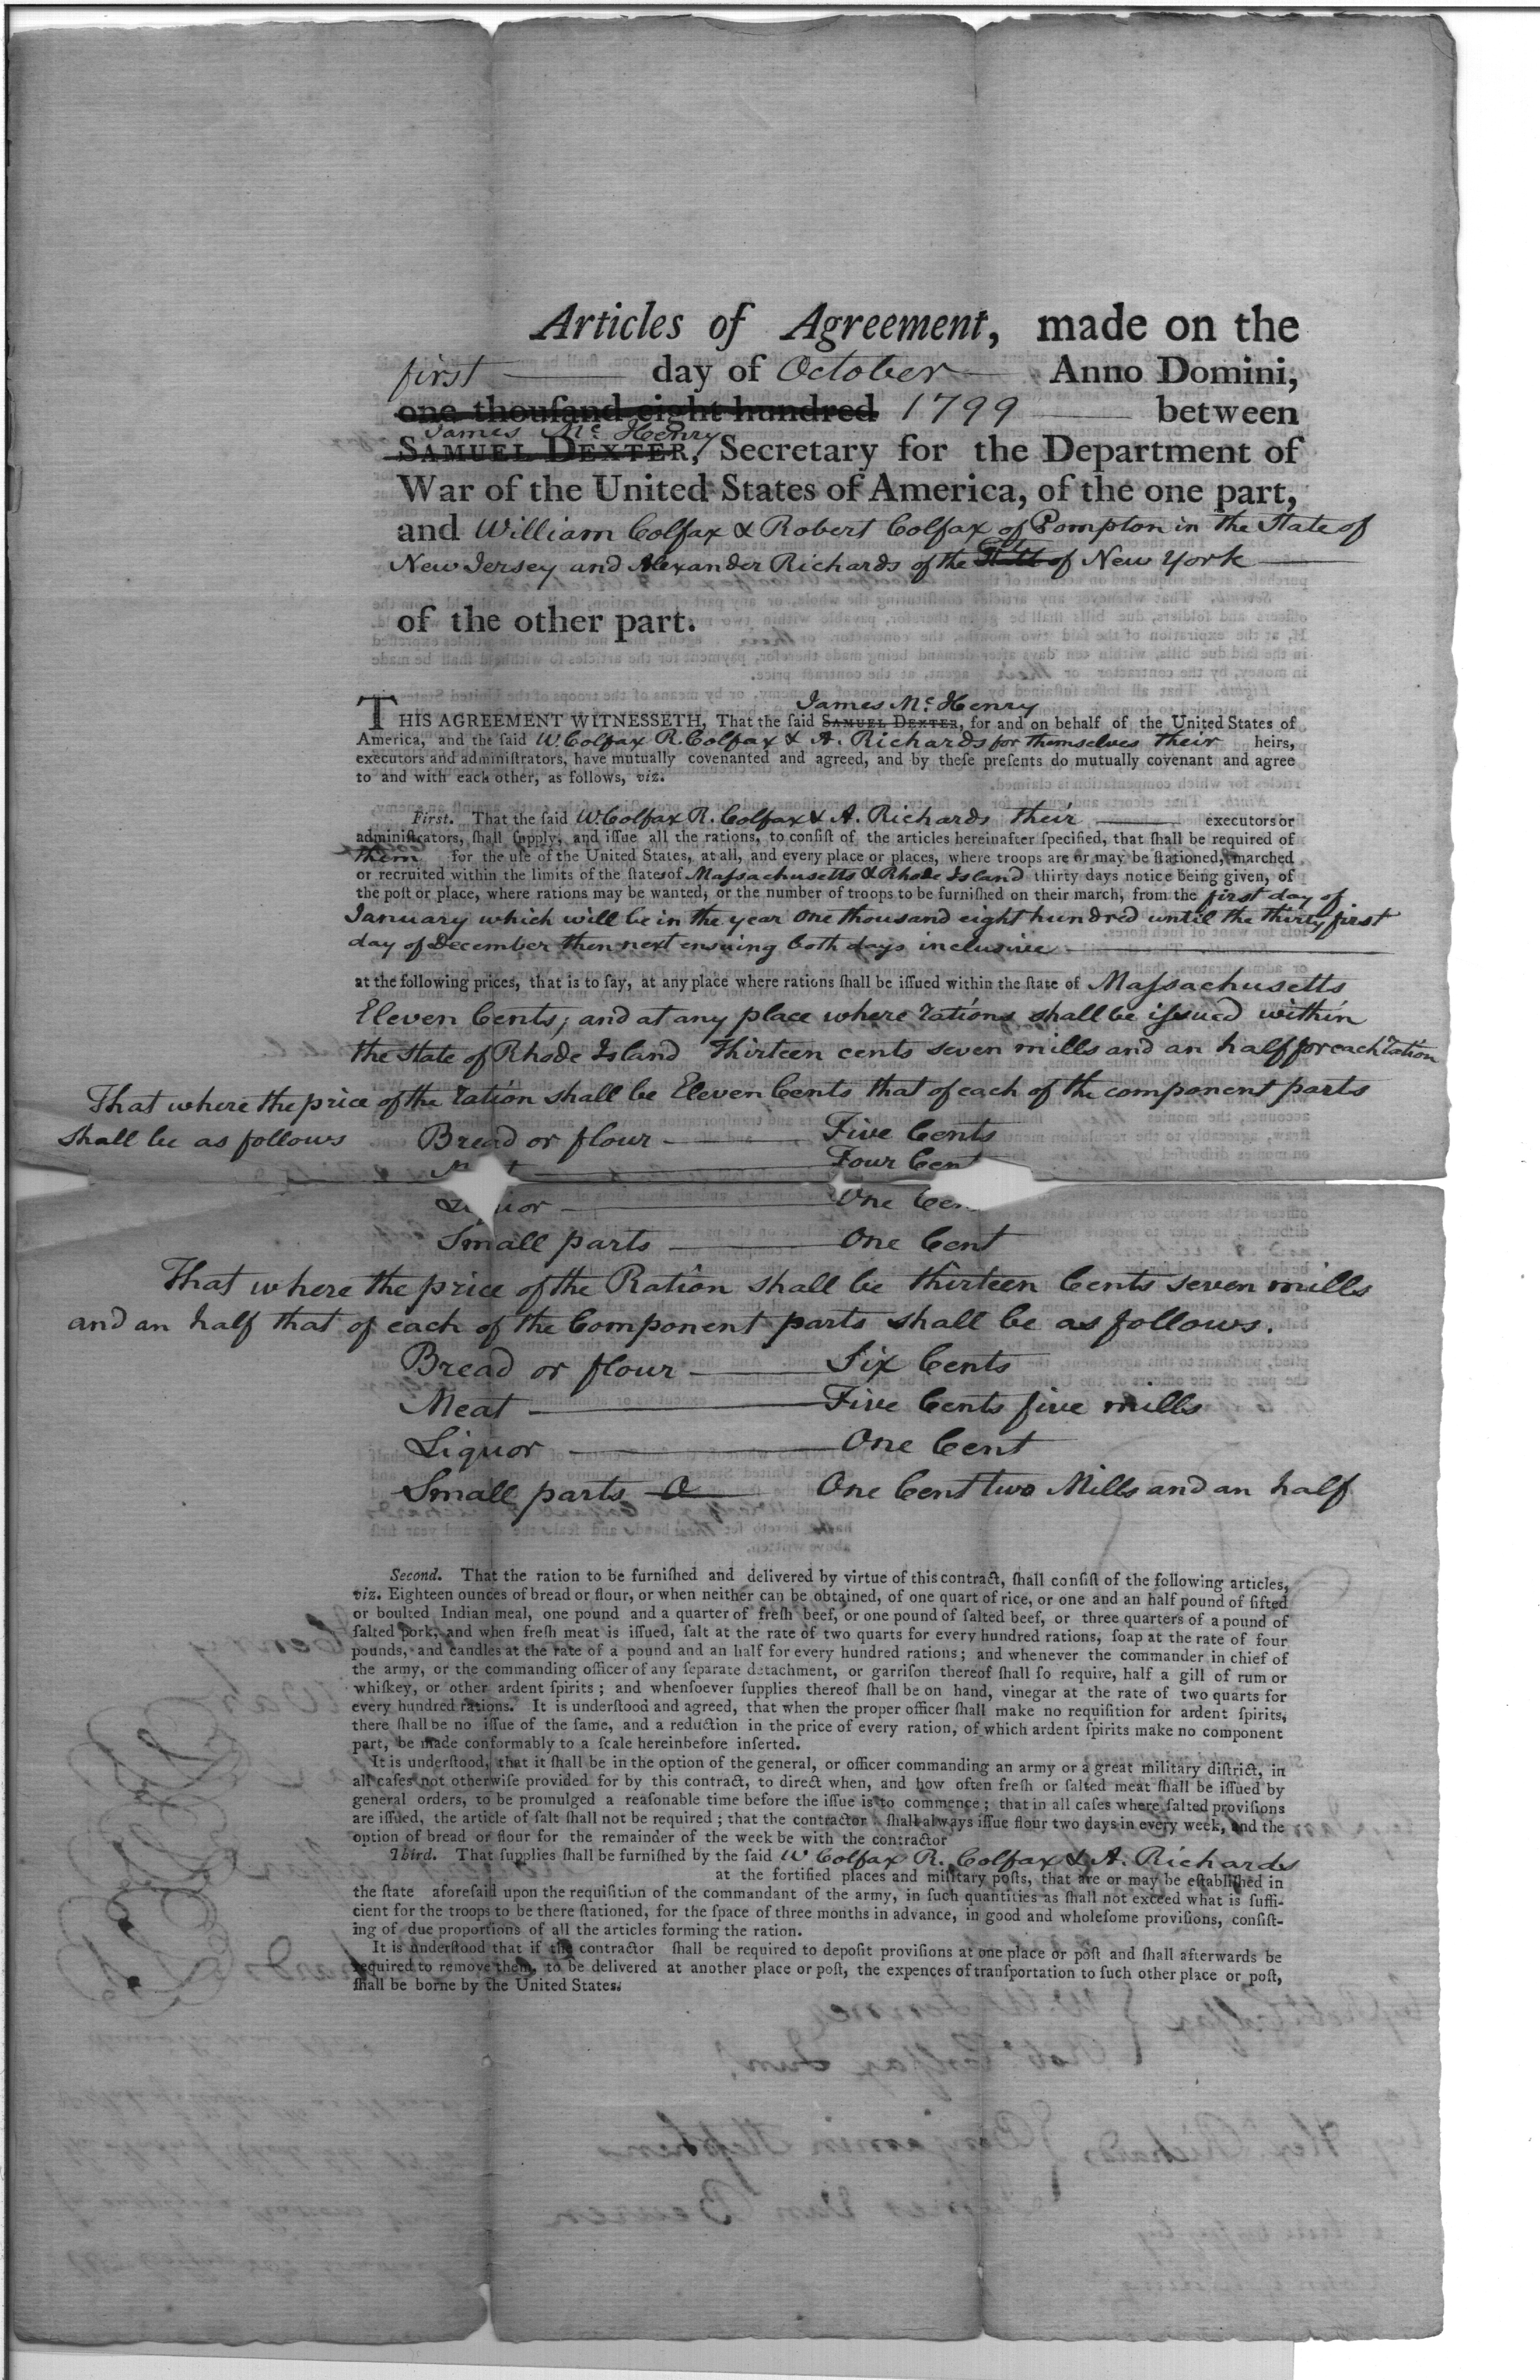 Articles of Agreement, made on the
first day of October Anno Domini,
one thouſand eight hundred 1799 between
James Mc Henry
SAMUEL DEXTER, Secretary for the Department of
War of the United States of America, of the one part,
and William Colfax & Robert Colfax of Pompton in the State of
City
New Jersey and Alexander Richards of the State of New York
of the other part.
James Mc Henry
THIS AGREEMENT WITNESSETH, That the ſaid SAMUEL DEXTER, for and on behalf of the United States of
America, and the ſaid W. Colfax R. Colfax & A. Richards for themselves their heirs,
executors and adminiſtrators, have mutually covenanted and agreed, and by theſe preſents do mutually covenant and agree
to and with each other, as follows, viz.
Firſt. That the ſaid W. Colfax R. Colfax & A. Richards their executors or
adminiſtrators, ſhall ſupply, and iſſue all the rations, to conſiſt of the articles hereinafter ſpecified, that ſhall be required of
them for the uſe of the United States, at all, and every place or places, where troops are or may be ſtationed, marched
or recruited within the limits of the ſtates of Maſsachusetts & Rhode Island thirty days notice being given, of
the poſt or place, where rations may be wanted, or the number of troops to be furniſhed on their march, from the first day of
January which will be in the year one thousand eight hundred until the thirty first
day of December then next ensuing both days inclusive
at the following prices, that is to ſay, at any place where rations ſhall be iſſued within the ſtate of Maſsachusetts
Eleven Cents; and at any place where rations shall be iſsued within
the State of Rhode Island Thirteen cents seven mills and an half for each ration
That where the price of the ration shall be Eleven Cents that of each of the component parts
shall be as follows Bread or flour Five Cents
Four Cent
Liquor One Cen
Small parts One Cent
That where the price of the Ration shall be thirteen Cents seven mills
and an half that of each of the Component parts shall be as follows.
Bread or flour Six Cents
Meat Five Cents five mills
Liquor One Cent
Small parts One Cent two Mills and an half
Second. That the ration to be furniſhed and delivered by virtue of this contract, ſhall conſiſt of the following articles,
viz. Eighteen ounces of bread or flour, or when neither can be obtained, of one quart of rice, or one and an half pound of ſifted
or boulted Indian meal, one pound and a quarter of freſh beef, or one pound of ſalted beef, or three quarters of a pound of
ſalted pork, and when freſh meat is iſſued, ſalt at the rate of two quarts for every hundred rations, ſoap at the rate of four
pounds, and candles at the rate of a pound and an half for every hundred rations; and whenever the commander in chief of
the army, or the commanding officer of any ſeparate detachment, or garriſon thereof ſhall ſo require, half a gill of rum or
whiſkey, or other ardent ſpirits; and whenſoever ſupplies thereof ſhall be on hand, vinegar at the rate of two quarts for
every hundred rations. It is underſtood and agreed, that when the proper officer ſhall make no requiſition for ardent ſpirits,
there ſhall be no iſſue of the ſame, and a reduction in the price of every ration, of which ardent ſpirits make no component
part, be made conformably to a ſcale hereinbefore inſerted.
It is underſtood, that it ſhall be in the option of the general, or officer commanding an army or a great military diſtrict, in
all caſes not otherwiſe provided for by this contract, to direct when, and how often freſh or ſalted meat ſhall be iſſued by
general orders, to be promulged a reaſonable time before the iſſue is to commence; that in all caſes where ſalted proviſions
are iſſued, the article of ſalt ſhall not be required; that the contractor ſhall always iſſue flour two days in every week, and the
option of bread or flour for the remainder of the week be with the contractor
Third. That ſupplies ſhall be furniſhed by the ſaid W Colfax R. Colfax & A. Richards
at the fortified places and military poſts, that are or may be eſtabliſhed in
the ſtate aforeſaid upon the requiſition of the commandant of the army, in ſuch quantities as ſhall not exceed what is ſuffi-
cient for the troops to be there ſtationed, for the ſpace of three months in advance, in good and wholeſome proviſions, conſiſt-
ing of due proportions of all the articles forming the ration.
It is underſtood that if the contractor ſhall be required to depoſit proviſions at one place or poſt and ſhall afterwards be
required to remove them, to be delivered at another place or poſt, the expences of tranſportation to ſuch other place or poſt,
ſhall be borne by the United States.